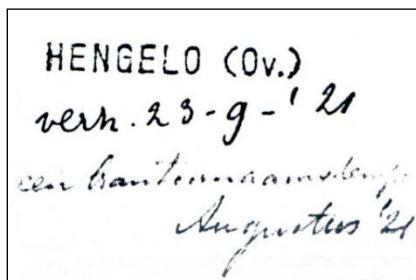 HENGELO (Ov.)
verh. 23-9-'21
een kantoornaamstempel
Augustus '21